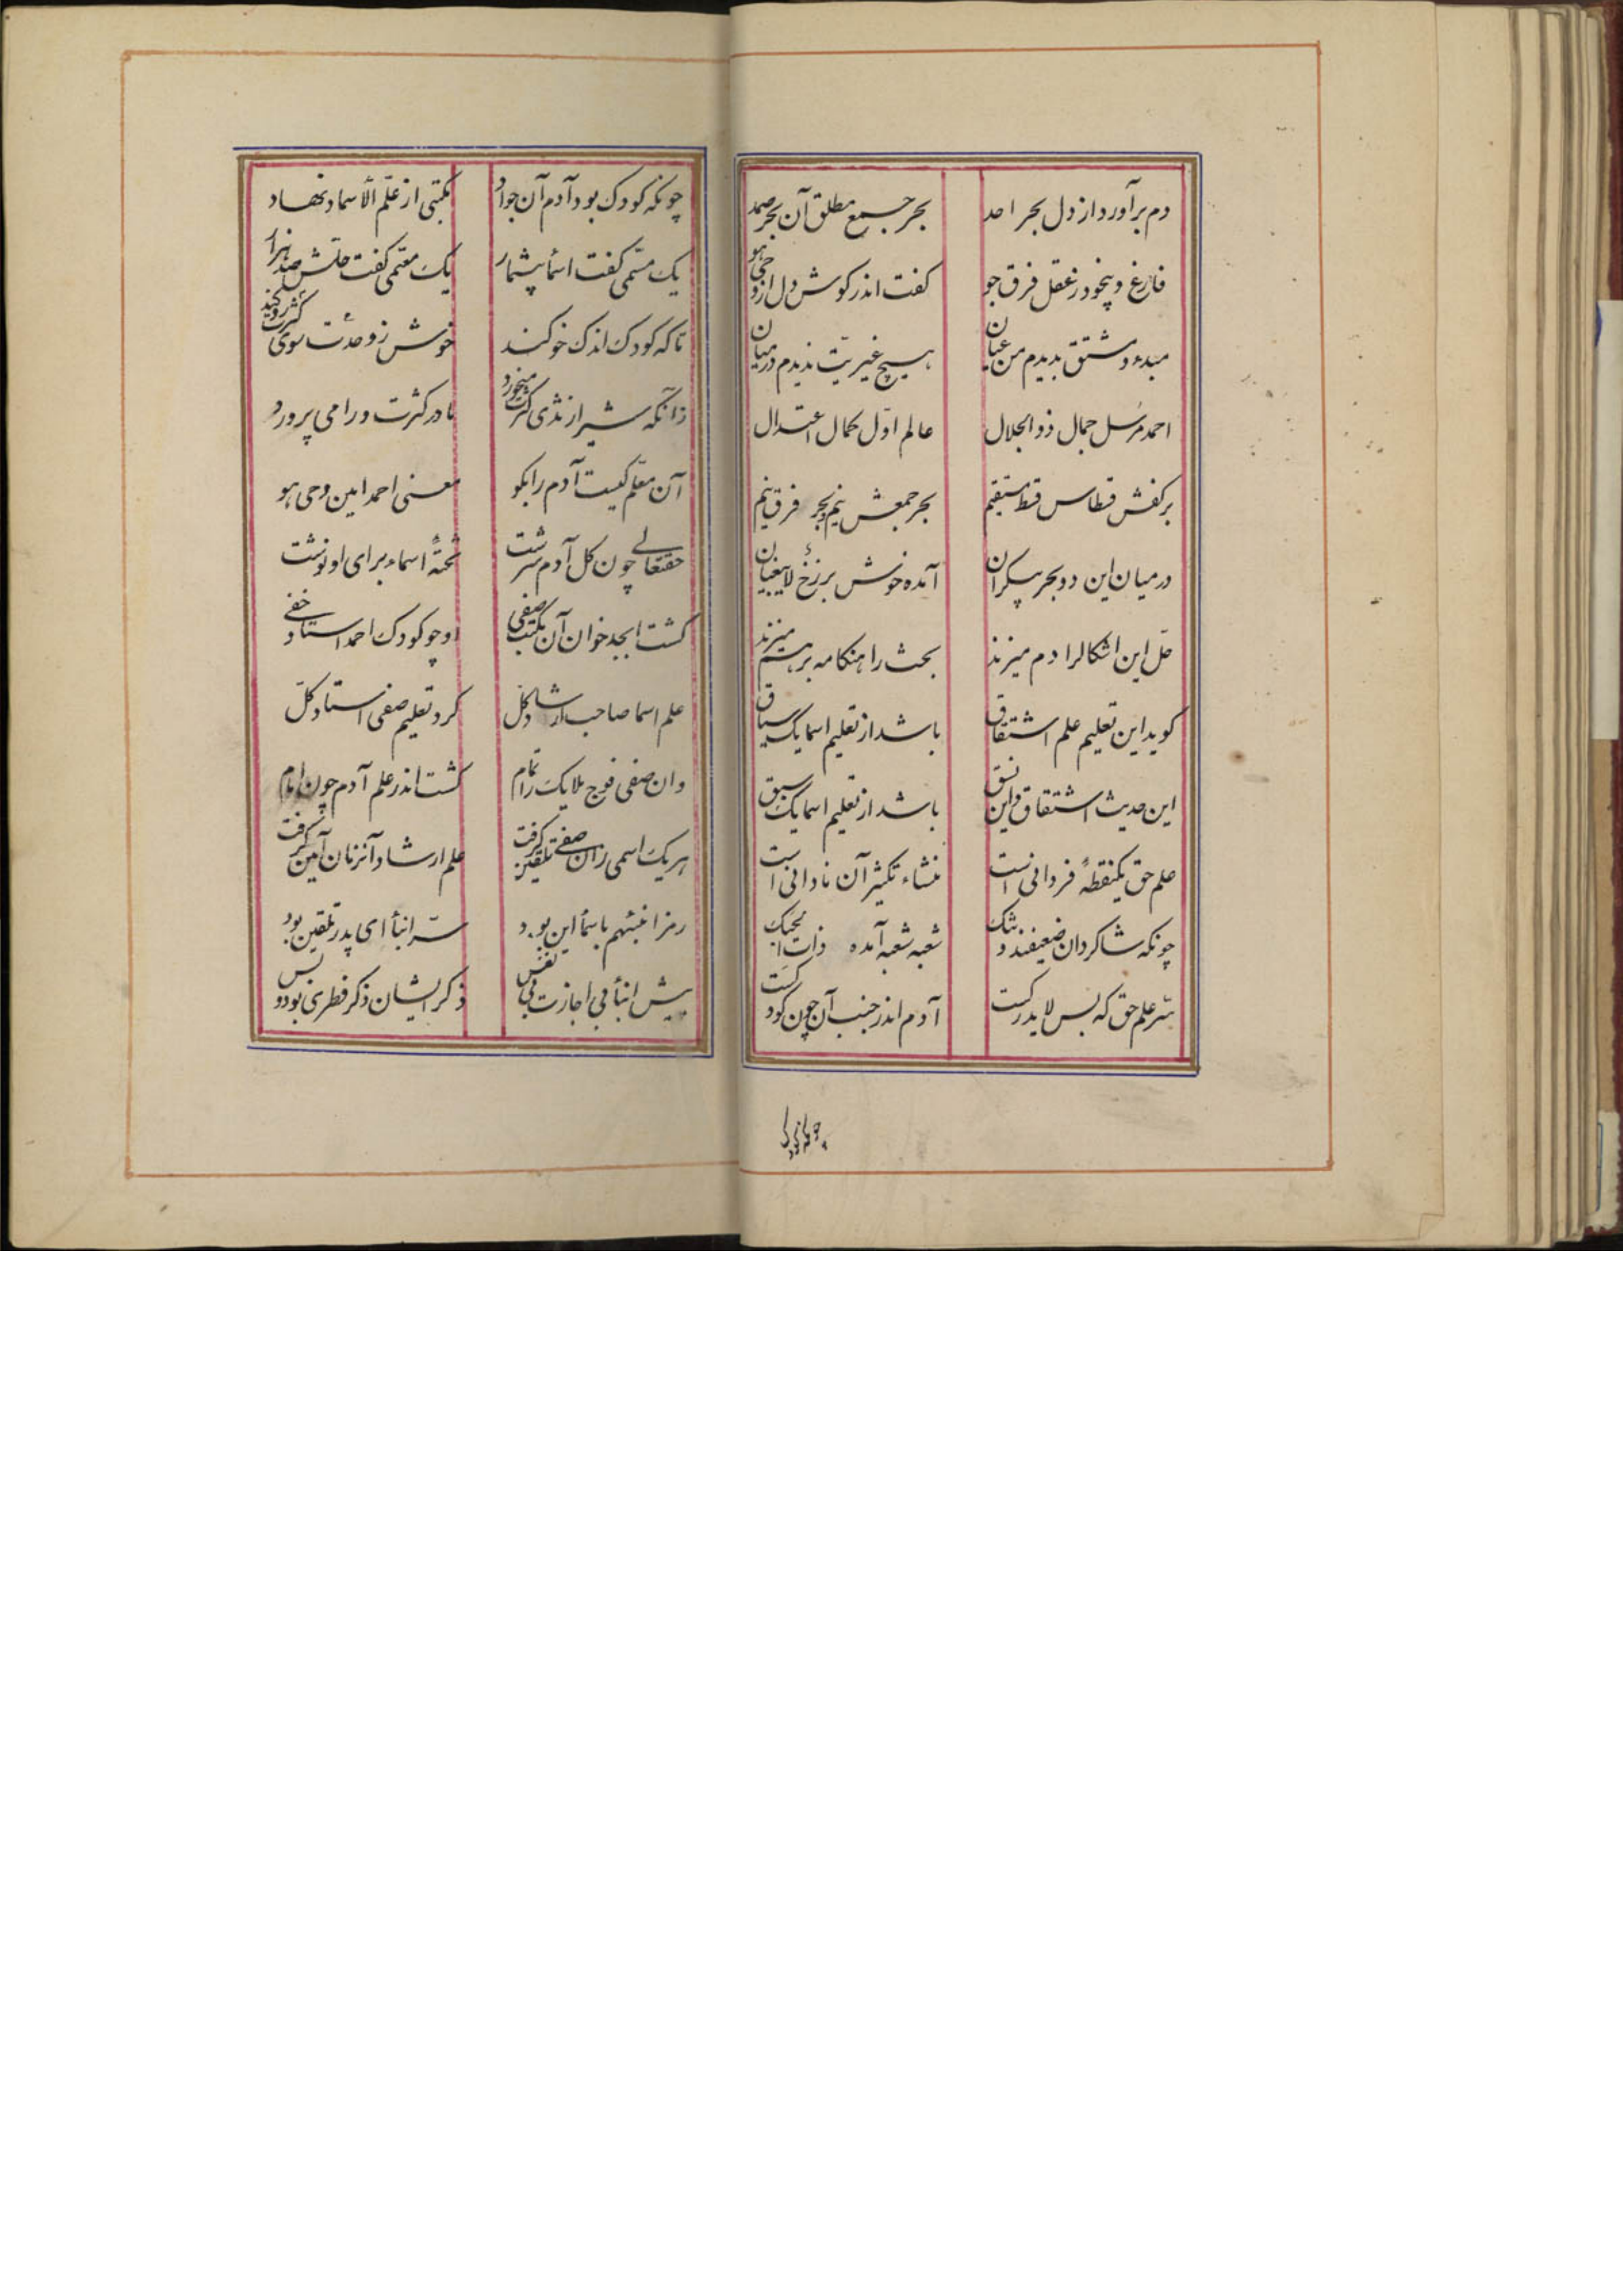 دم برآورد از دل بحر احد بحر جمع مطلق آن بحر صمد
فارغ و بیخود ز عقل فرق جو کفت اندر کوش دل از وحی هو
مبدء و مشتق بدیدم من عیان هیچ غیریّت ندیدم در میان
احمد مرسل جمال ذو الجلال عالم اوّل کمال اعتدال
بر کفش قسطاس قسط مستقیم بحر جمعش نیم و بحر فرق نیم
در میان این دو بحر بیکران آمده خوش برزخ لا یبغیان
حلّ این اشکالرا دم میزند بحث را هنکامه برهم میزند
کوید این تعلیم علم اشتقاق باشد از تعلیم اسما یک سیاق
این حدیث اشتقاق و این نسق باشد از تعلیم اسما یک سبق
علم حق یکنقطهٔ فردانی است منشاء تکثیر آن نادانی است
چونکه شاکردان ضعیفند و شعبه شعبه آمده ذات
سرّ علم حق که بس لا یدرکست آدم اندر جنب آن چون کودکست
چونکه کودک بود آدم آن جواد مکتبی از علّم الأسما نهاد
یک مسمّی کفت اسما بیشمار یک معمّی کفت حلّش صد هزار
تا که کودک اندک خو کند خوش ز وحدت سوی کثرت رو کند
زانکه شیر از ثدی کثرت میخورد مادر کثرت ورا می پرورد
آن معلّم کیست آدم را بکو معنی احمد امین وحی هو
حقتعالی چون کل آدم سرشت تختهٔ اسماء برای او نوشت
کشت ابجد خوان آن مکتب صفی او چو کودک احمد استاد خفی
علم اسما صاحب ارشاد کل کرد تعلیم صفی استاد کلّ
وان صفی فوج ملایک را تمام کشت اندر علم آدم چون امام
هر یک اسمی زان صفی تلقین کرفت علم ارشاد آنزمان آیین کرفت
رمز انبئهم باسما این بود سرّ انبأ ای پدر تلقین بود
پیش انبأ بی اجازت بی نفس ذکر ایشان ذکر فطری بود و بس
چونکه کودک